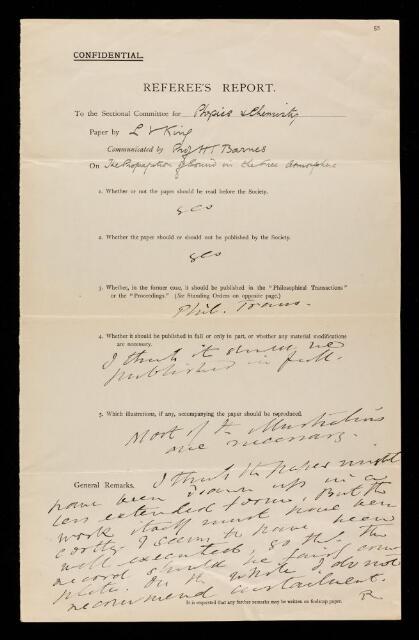 55
CONFIDENTIAL.
REFEREE'S REPORT.
To the Sectional Committee for Physics & Chemistry
Paper by L V King
Communicated by Prof H T Barnes
On The Propagation of Sound in the free atmosphere
1. Whether or not the paper should be read before the Society.
yes
2. Whether the paper should or should not be published by the Society.
yes
3. Whether, in the former case, it should be published in the "Philosophical Transactions"
or the "Proceedings." (See Standing Orders on opposite page.)
Phil. Trans.
4. Whether it should be published in full or only in part, or whether any material modifications
are necessary.
I think it should be
published in full.
5. Which illustrations, if any, accompanying the paper should be reproduced.
Most of the illustrations
are necessary.
General Remarks. I think the paper might
have been drawn up in a
less extended form. But the
work itself must have been
costly & seems to have been
well executed, so that the
record should be fairly com
plete. On the whole I do not
recommend curtailment.
R
It is requested that any further remarks may be written on foolscap paper.